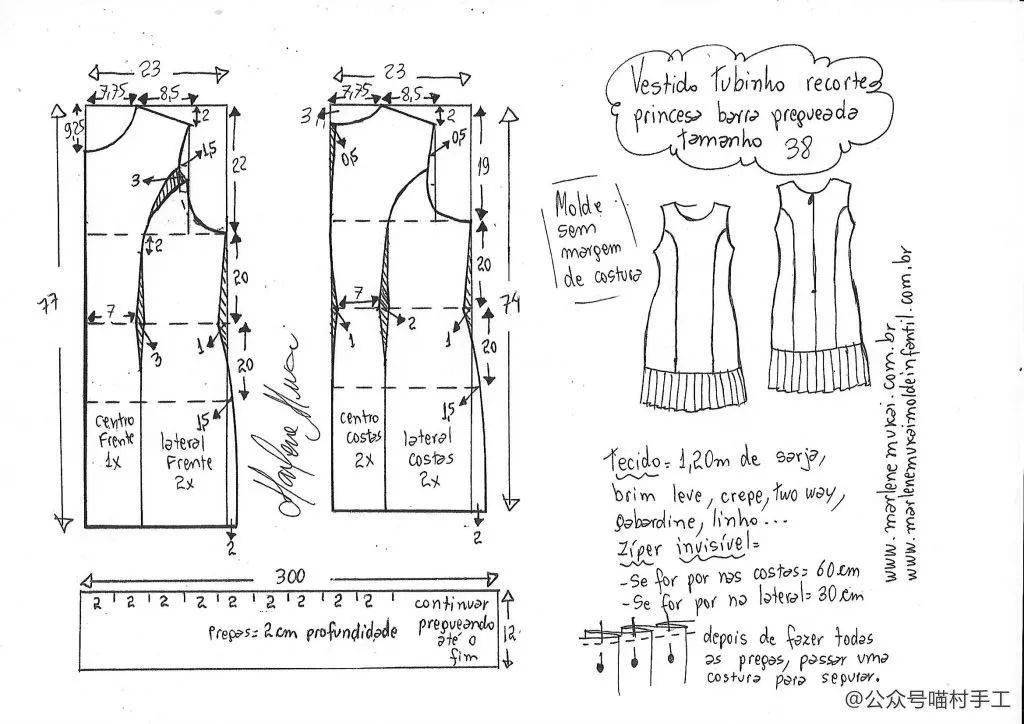 23
7,75
8,5
9,25
2
1,5
3
22
2
77
20
7
3
1
20
1,5
centro
Frente
1x
lateral
Frente
2x
2
23
7,75
8,5
3
2
0,5
0,5
19
20
7
2
1
1
74
20
1,5
centro
costas
2x
lateral
costas
2x
2
Marlene Mukai
300
2 2 2 2 2 2 2 2 2
continuar
pregueando
até o
fim
Pregas = 2 cm profundidade
12
Vestido tubinho recortes
princesa barra pregueada
tamanho 38
Molde
sem
margem
de costura
www.marlenemukai.com.br
www.marlenemukaimoldeinfantil.com.br
Tecido = 1,20m de sarja,
brim leve, crepe, two way,
gabardine, linho...
Zíper invisível =
-Se for por nas costas = 60 cm
-Se for por na lateral = 30 cm
depois de fazer todas
as pregas, passar uma
costura para segurar.
@公众号喵村手工